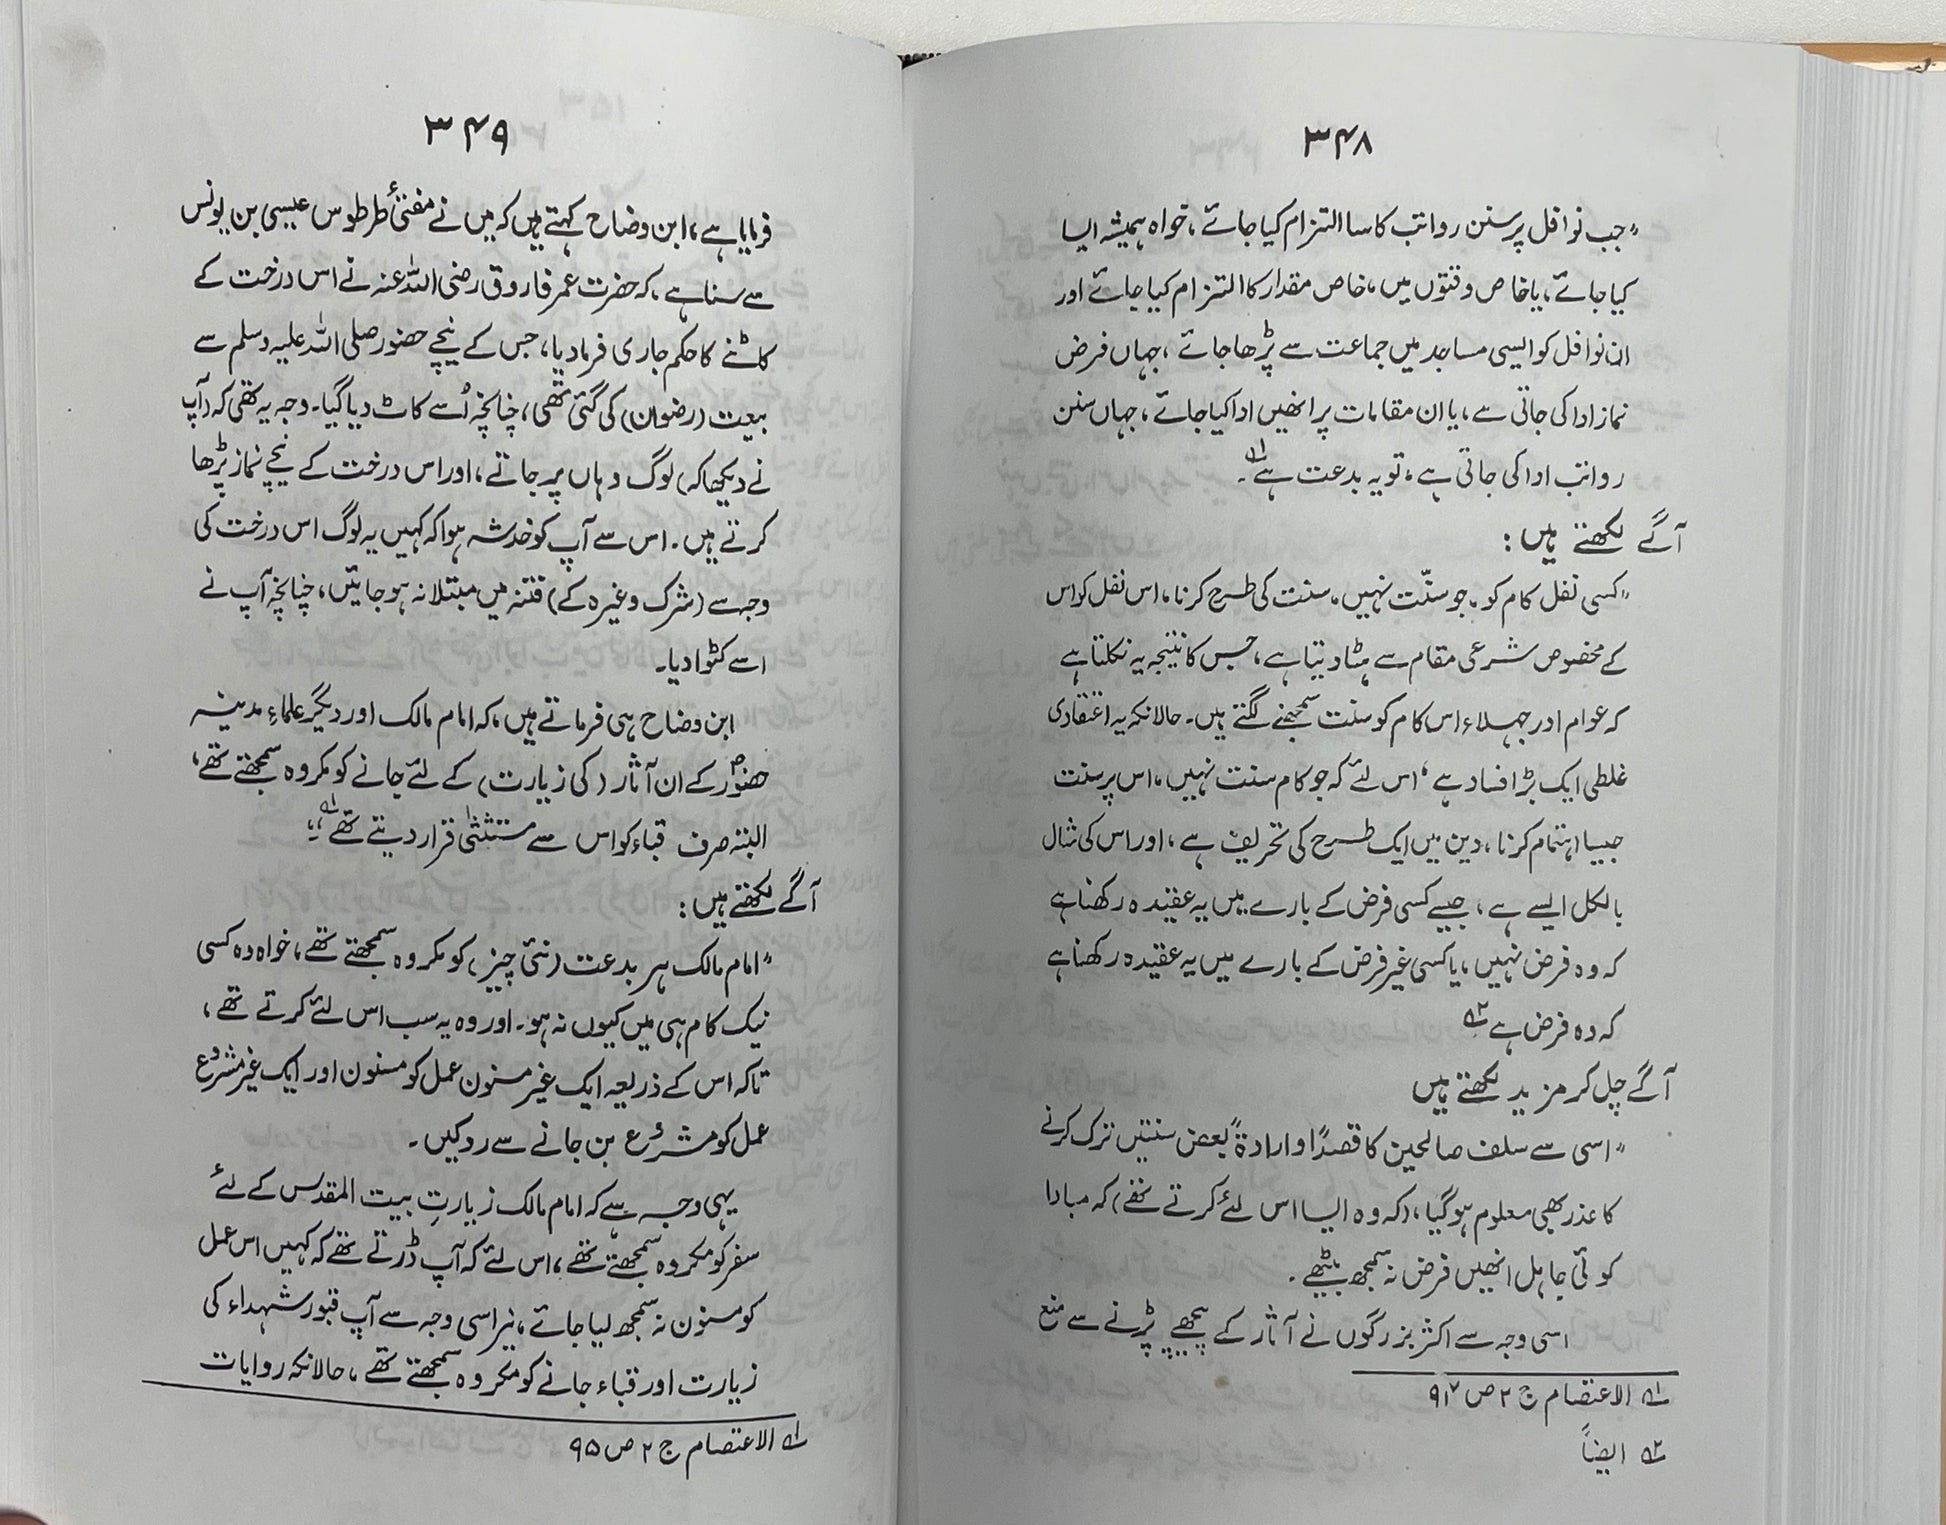 ۳۴۸
"جب نوافل پر سنن رواتب کا سا التزام کیا جائے، خواہ ہمیشہ ایسا
کیا جائے، یا خاص وقتوں میں، خاص مقدار کا التزام کیا جائے اور
ان نوافل کو ایسی مساجد میں جماعت سے پڑھا جائے، جہاں فرض
نماز ادا کی جاتی ہے، یا ان مقامات پر انھیں ادا کیا جائے، جہاں سنن
رواتب ادا کی جاتی ہے، تو یہ بدعت ہے۔ لہ۱
آگے لکھتے ہیں:
"کسی نفل کام کو۔ جو سنّت نہیں۔ سنت کی طرح کرنا، اس نفل کو اس
کے مخصوص شرعی مقام سے ہٹا دیتا ہے، جس کا نتیجہ یہ نکلتا ہے
کہ عوام اور جہلاء اس کام کو سنت سمجھنے لگتے ہیں۔ حالانکہ یہ اعتقادی
غلطی ایک بڑا فساد ہے، اس لئے کہ جو کام سنت نہیں، اس پر سنت
جیسا اہتمام کرنا، دین میں ایک طرح کی تحریف ہے، اور اس کی مثال
بالکل ایسے ہے، جیسے کسی فرض کے بارے میں یہ عقیدہ رکھنا ہے
کہ وہ فرض نہیں، یا کسی غیر فرض کے بارے میں یہ عقیدہ رکھنا ہے
کہ وہ فرض ہے ۲ہ
آگے چل کر مزید لکھتے ہیں
"اسی سے سلف صالحین کا قصداً و ارادۃً بعض سنتیں ترک کرنے
کا عذر بھی معلوم ہو گیا، (کہ وہ ایسا اس لئے کرتے تھے) کہ مبادا
کوئی جاہل انھیں فرض نہ سمجھ بیٹھے۔
اسی وجہ سے اکثر بزرگوں نے آثار کے پیچھے پڑنے سے منع
لہ۱ الاعتصام ج ۲ ص ۹۲
۲ہ ایضاً
۳۴۹
فرمایا ہے، ابن وضاح کہتے ہیں کہ میں نے مفتیٔ طرطوس عیسی بن یونس
سے سنا ہے، کہ حضرت عمر فاروق رضی اللہ عنہ نے اس درخت کے
کاٹنے کا حکم جاری فرما دیا، جس کے نیچے حضور صلی اللہ علیہ وسلم سے
بیعت (رضوان) کی گئی تھی، چنانچہ اُسے کاٹ دیا گیا۔ وجہ یہ تھی کہ (آپ
نے دیکھا کہ) لوگ وہاں پر جاتے، اور اس درخت کے نیچے نماز پڑھا
کرتے ہیں۔ اس سے آپ کو خدشہ ہوا کہ کہیں یہ لوگ اس درخت کی
وجہ سے (شرک وغیرہ کے) فتنہ میں مبتلا نہ ہو جائیں، چنانچہ آپ نے
اسے کٹوا دیا۔
ابن وضاح ہی فرماتے ہیں، کہ امام مالک اور دیگر علماءِ مدینہ
حضورؐ کے ان آثار (کی زیارت) کے لئے جانے کو مکروہ سمجھتے تھے،
البتہ صرف قباء کو اس سے مستثنیٰ قرار دیتے تھے لہ۱"
آگے لکھتے ہیں:
"امام مالک ہر بدعت (نئی چیز) کو مکروہ سمجھتے تھے، خواہ وہ کسی
نیک کام ہی میں کیوں نہ ہو۔ اور وہ یہ سب اس لئے کرتے تھے،
تاکہ اس کے ذریعہ ایک غیر مسنون عمل کو مسنون اور ایک غیر مشروع
عمل کو مشروع بن جانے سے روکیں۔
یہی وجہ ہے کہ امام مالک زیارتِ بیت المقدس کے لئے
سفر کو مکروہ سمجھتے تھے، اس لئے کہ آپ ڈرتے تھے کہ کہیں اس عمل
کو مسنون نہ سمجھ لیا جائے، نیز اسی وجہ سے آپ قبور شہداء کی
زیارت اور قباء جانے کو مکروہ سمجھتے تھے، حالانکہ روایات
لہ۱ الاعتصام ج ۲ ص ۹۵